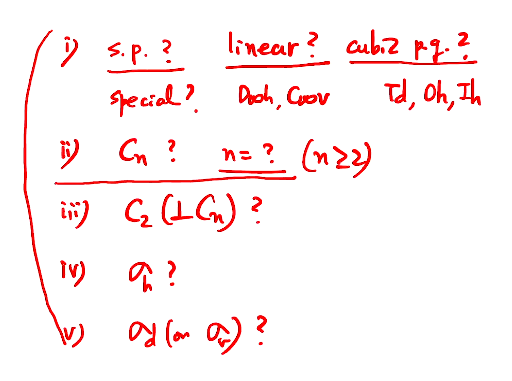 i) s.p. ? linear? cubiz p.g. ?
special? D∞h, C∞v Td, Oh, Ih
ii) Cn ? n = ? (n≥2)
iii) C2 (⊥Cn) ?
iv) σh ?
v) σd (or σv) ?